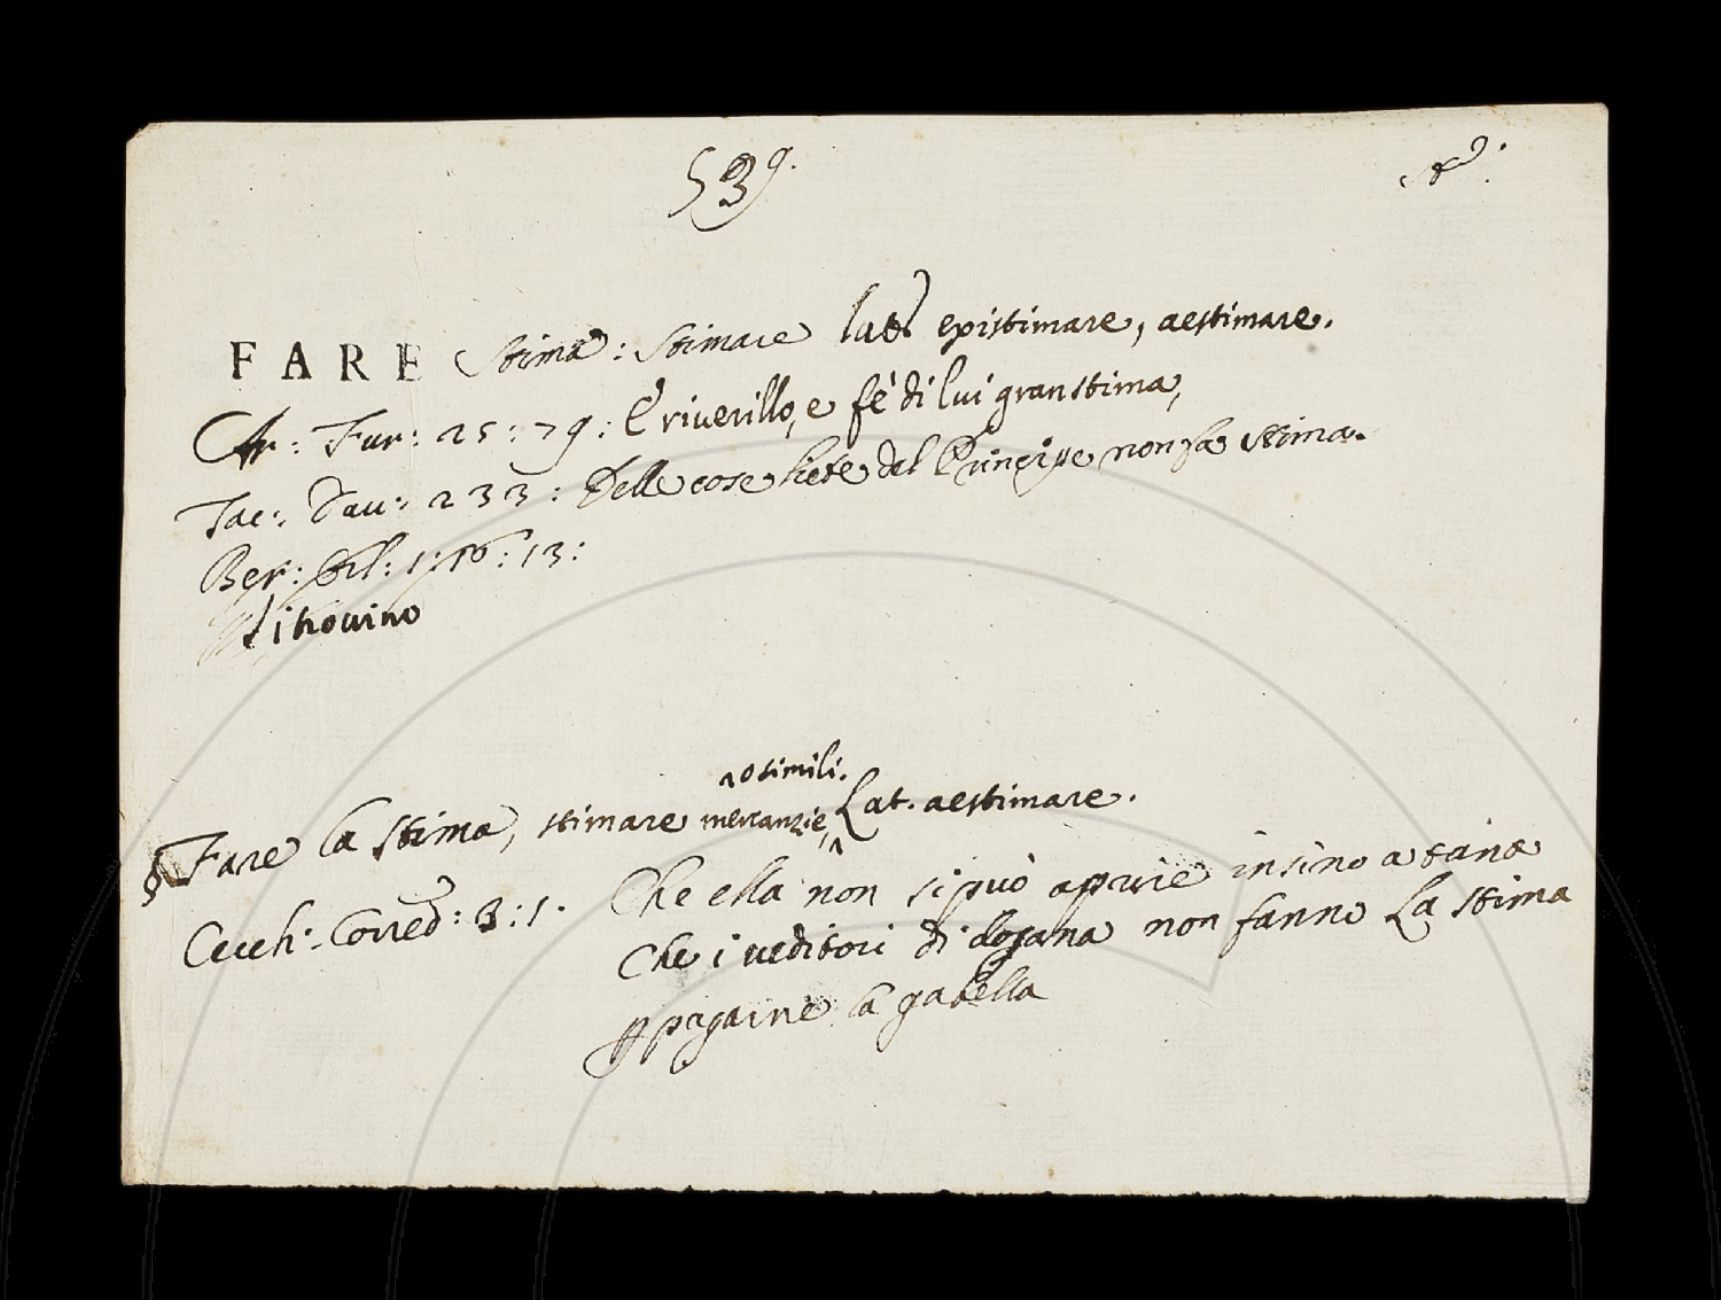 539.
FARE Stima: Stimare lat. epistimare, aestimare.
Ar: Fur: 25:79: E riverillo, e fè di lui gran stima,
Tac: Dav: 233: Delle cose liete del Principe non fa stima.
Ber: Orl: 1:16:13:
si trovino
§ Fare la stima, stimare mercanzie, ^ o simili. Lat. aestimare.
Cecch: Corred: 3:1. Che ella non si può aprire insino a tanto
Che i veditori di dogana non fanno La stima
p pagarne la gabella